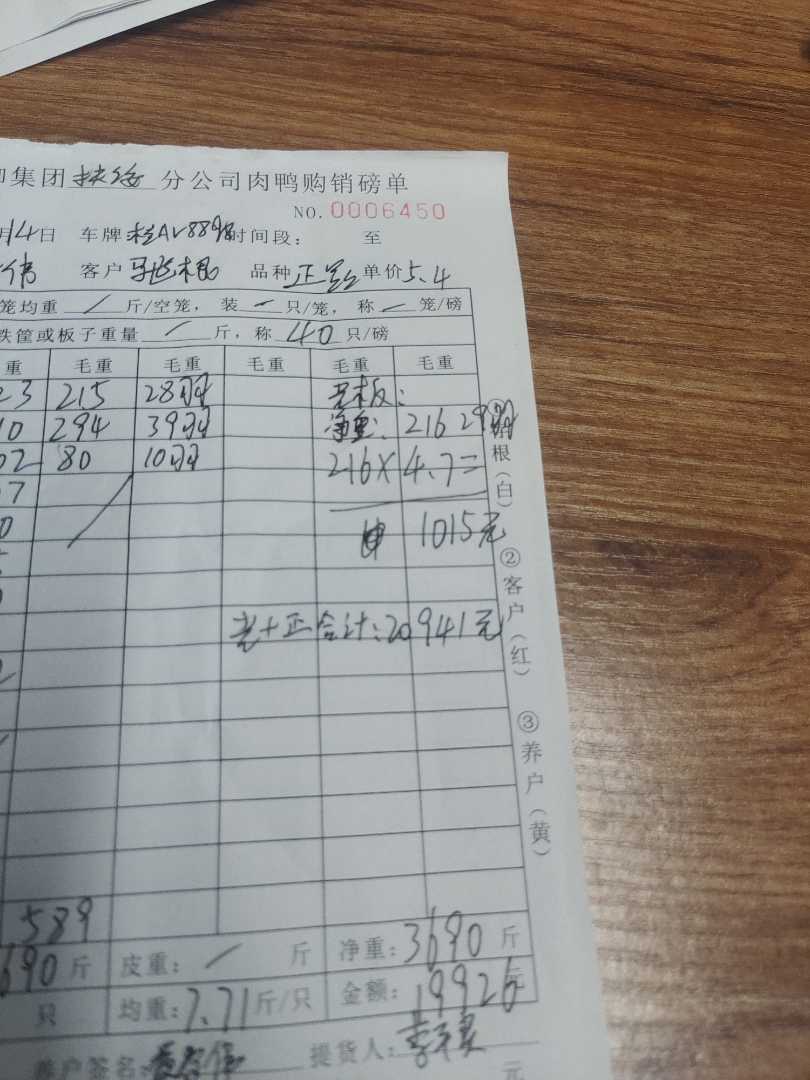 集团扶绥分公司肉鸭购销磅单
NO.0006450
月14日 车牌 时间段: 至
伟 客户 品种 正 单价5.4
笼均重 / 斤/空笼, 装 - 只/笼, 称 - 笼/磅
铁筐或板子重量 / 斤, 称 40 只/磅
重 毛重 毛重 毛重 毛重 毛重
23 215 28羽 老板:
10 294 39羽 净重: 216 29羽
02 80 10羽 216×4.7=
7
0 1015元
光+正合计:20941元
589
690斤 皮重: / 斤 净重:3690斤
只 均重:7.71斤/只 金额:19926元
养户签名: 提货人:
元
①存根(白)
②客户(红)
③养户(黄)